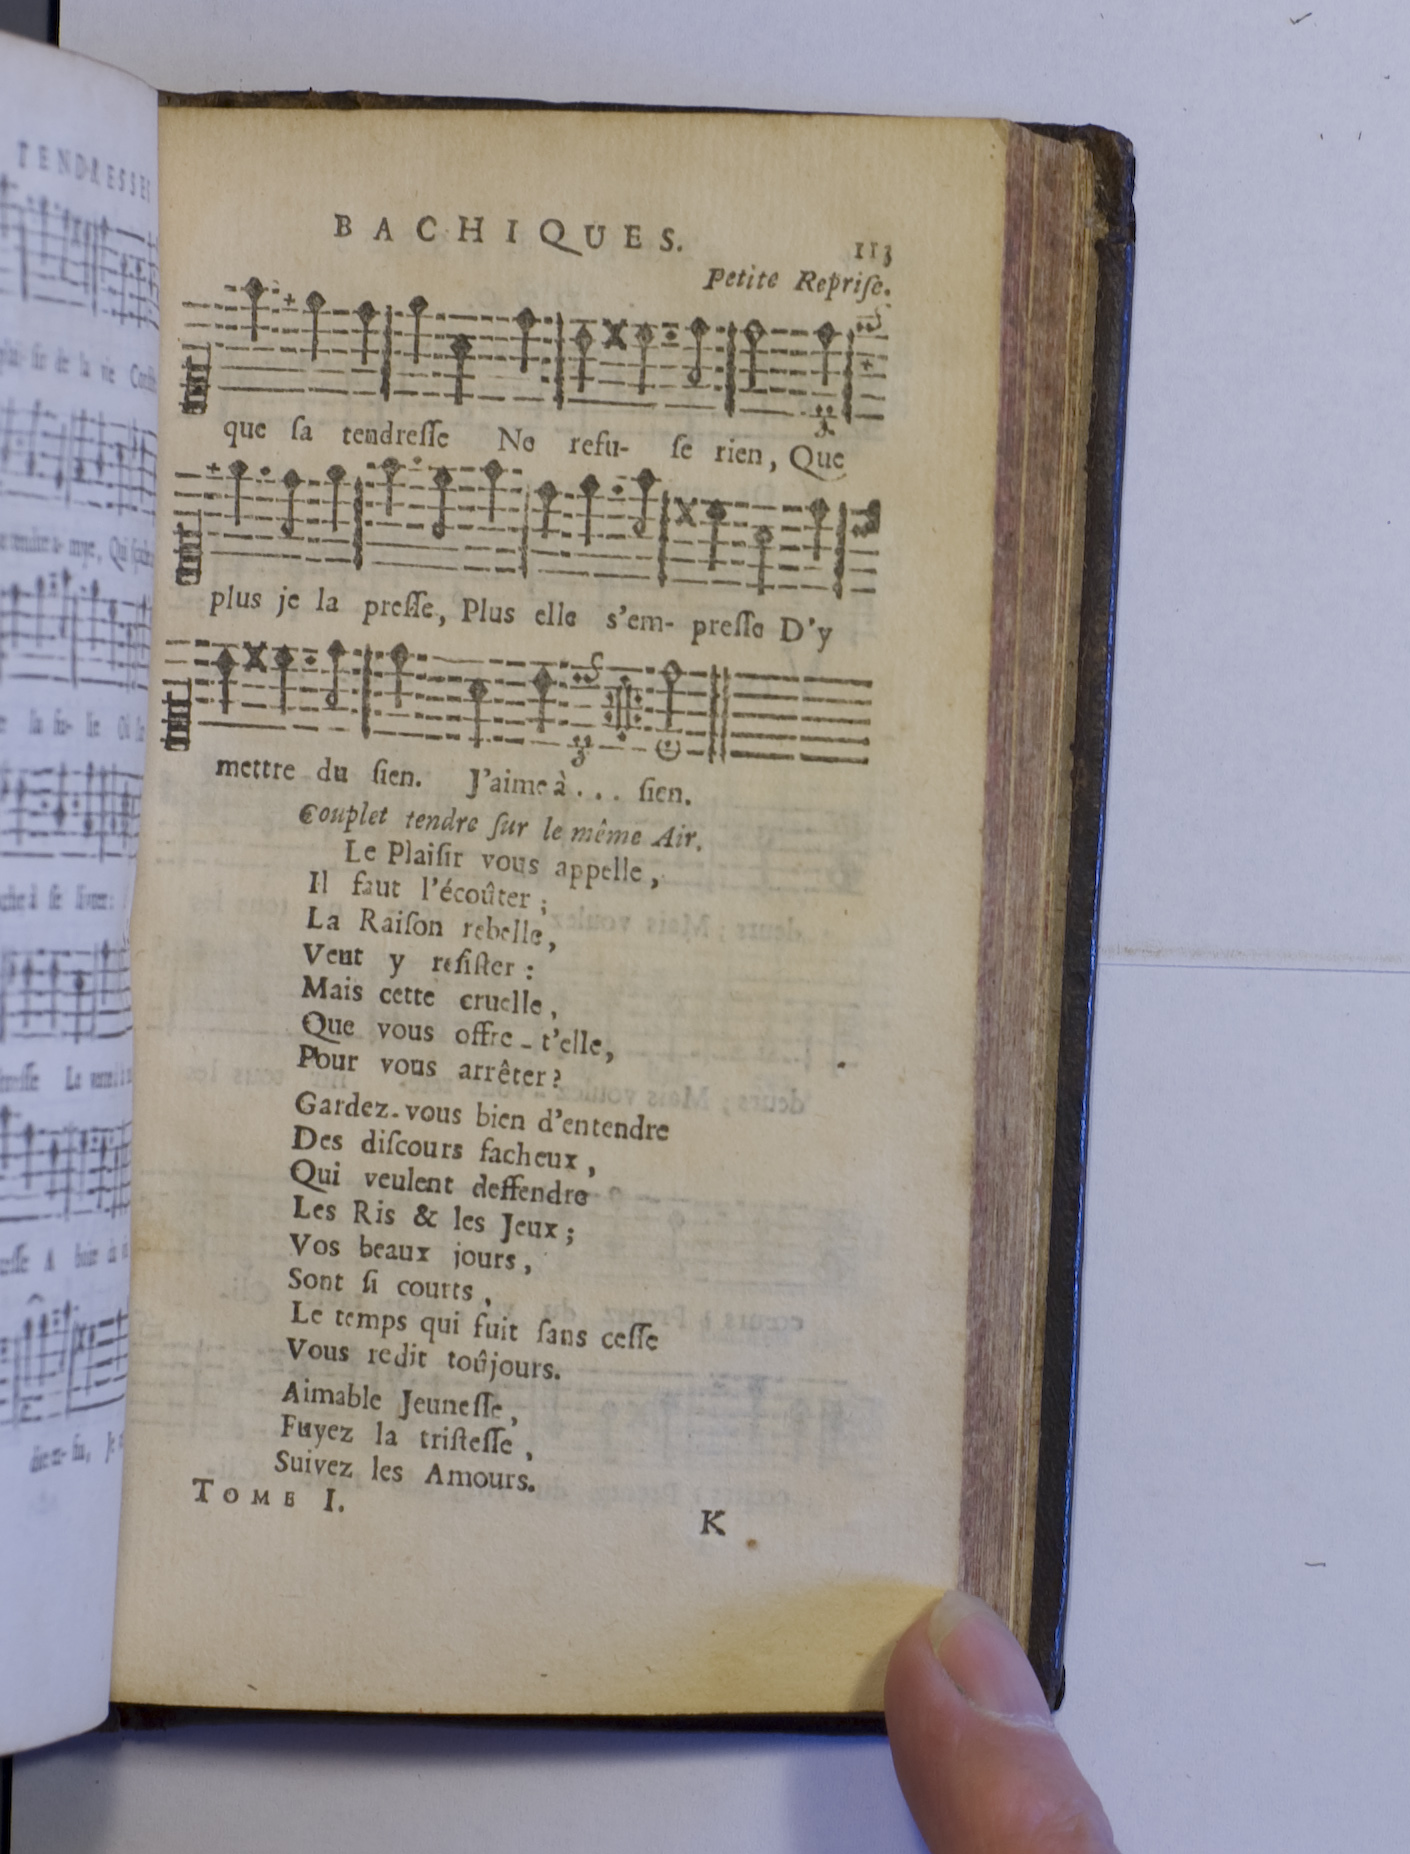 TENDRESSES
BACHIQUES.
113
Petite Repriſe.
que ſa tendreſſe Ne refu- ſe rien, Que
plus je la preſſe, Plus elle s'em- preſſe D'y
mettre du ſien. J'aime à ... ſien.
Couplet tendre ſur le même Air.
Le Plaiſir vous appelle,
Il faut l'écoûter;
La Raiſon rebelle,
Veut y reſiſter:
Mais cette cruelle,
Que vous offre-t'elle,
Pour vous arrêter?
Gardez-vous bien d'entendre
Des diſcours facheux,
Qui veulent deffendre
Les Ris & les Jeux;
Vos beaux jours,
Sont ſi courts,
Le temps qui fuit ſans ceſſe
Vous redit toûjours.
Aimable Jeuneſſe,
Fuyez la triſteſſe,
Suivez les Amours.
TOME I.
K